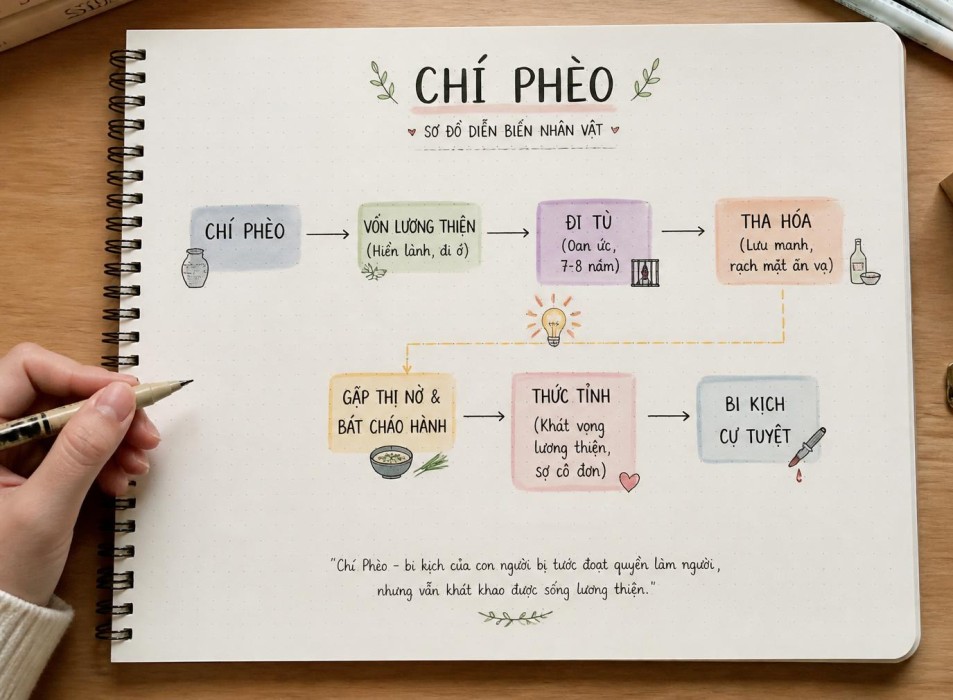 CHÍ PHÈO
SƠ ĐỒ DIỄN BIẾN NHÂN VẬT
CHÍ PHÈO
VỐN LƯƠNG THIỆN
(Hiền lành, đi ở)
ĐI TÙ
(Oan ức,
7-8 năm)
THA HÓA
(Lưu manh,
rạch mặt ăn vạ)
GẶP THỊ NỞ &
BÁT CHÁO HÀNH
THỨC TỈNH
(Khát vọng
lương thiện,
sợ cô đơn)
BI KỊCH
CỰ TUYỆT
"Chí Phèo - bi kịch của con người bị tước đoạt quyền làm người,
nhưng vẫn khát khao được sống lương thiện."